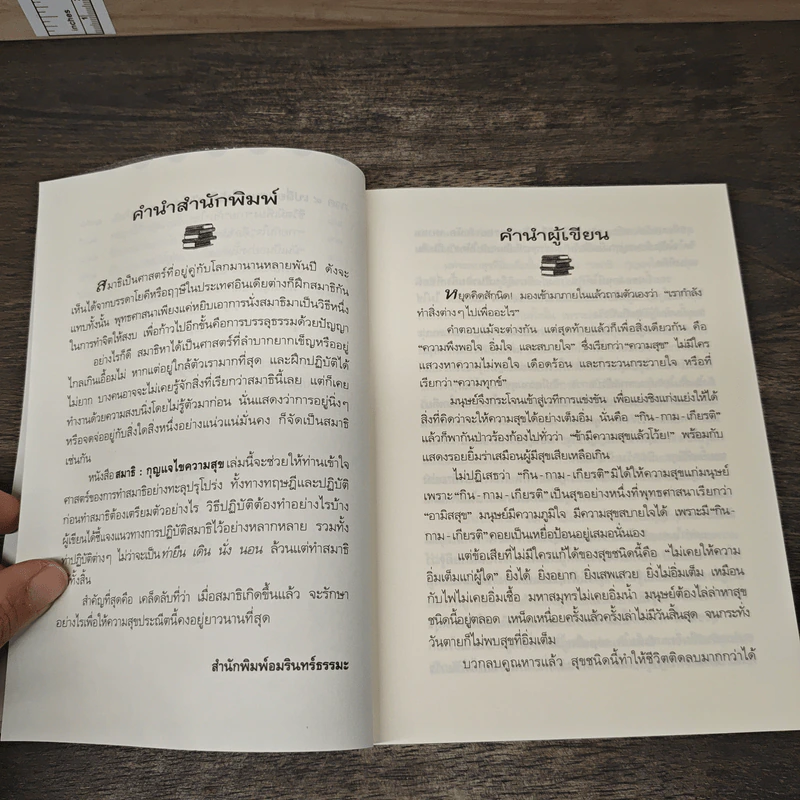 คำนำสำนักพิมพ์
สมาธิเป็นศาสตร์ที่อยู่คู่กับโลกมานานหลายพันปี ดังจะ
เห็นได้จากบรรดาโยคีหรือฤๅษีในประเทศอินเดียต่างก็ฝึกสมาธิกัน
แทบทั้งนั้น พุทธศาสนาเพียงแค่หยิบเอาการนั่งสมาธิมาเป็นวิธีหนึ่ง
ในการทำจิตให้สงบ เพื่อก้าวไปอีกขั้นคือการบรรลุธรรมด้วยปัญญา
อย่างไรก็ดี สมาธิหาได้เป็นศาสตร์ที่ลำบากยากเข็ญหรืออยู่
ไกลเกินเอื้อมไม่ หากแต่อยู่ใกล้ตัวเรามากที่สุด และฝึกปฏิบัติได้
ไม่ยาก บางคนอาจจะไม่เคยรู้จักสิ่งที่เรียกว่าสมาธินี้เลย แต่ก็เคย
ทำงานด้วยความสงบนิ่งโดยไม่รู้ตัวมาก่อน นั่นแสดงว่าการอยู่นิ่งๆ
หรือจดจ่ออยู่กับสิ่งใดสิ่งหนึ่งอย่างแน่วแน่มั่นคง ก็จัดเป็นสมาธิ
เช่นกัน
หนังสือสมาธิ : กุญแจไขความสุข เล่มนี้จะช่วยให้ท่านเข้าใจ
ศาสตร์ของการทำสมาธิอย่างทะลุปรุโปร่ง ทั้งทางทฤษฎีและปฏิบัติ
ก่อนทำสมาธิต้องเตรียมตัวอย่างไร วิธีปฏิบัติต้องทำอย่างไรบ้าง
ผู้เขียนได้ชี้แจงแนวทางการปฏิบัติสมาธิไว้อย่างหลากหลาย รวมทั้ง
ท่าปฏิบัติต่างๆ ไม่ว่าจะเป็น ท่ายืน เดิน นั่ง นอน ล้วนแต่ทำสมาธิ
ทั้งสิ้น
สำคัญที่สุดคือ เคล็ดลับที่ว่า เมื่อสมาธิเกิดขึ้นแล้ว จะรักษา
อย่างไรเพื่อให้ความสุขประณีตนี้คงอยู่ยาวนานที่สุด
สำนักพิมพ์อมรินทร์ธรรมะ
คำนำผู้เขียน
หยุดคิดสักนิด! มองเข้ามาภายในแล้วถามตัวเองว่า “เรากำลัง
ทำสิ่งต่างๆ ไปเพื่ออะไร”
คำตอบแม้จะต่างกัน แต่สุดท้ายแล้วก็เพื่อสิ่งเดียวกัน คือ
“ความพึงพอใจ อิ่มใจ และสบายใจ” ซึ่งเรียกว่า“ความสุข” ไม่มีใคร
แสวงหาความไม่พอใจ เดือดร้อน และกระวนกระวายใจ หรือที่
เรียกว่า“ความทุกข์”
มนุษย์จึงกระโจนเข้าสู่เวทีการแข่งขัน เพื่อแย่งชิงแก่งแย่งให้ได้
สิ่งที่คิดว่าจะให้ความสุขได้อย่างเต็มอิ่ม นั่นคือ “กิน-กาม-เกียรติ”
แล้วก็พากันป่าวร้องก้องไปทั่วว่า “ข้ามีความสุขแล้วโว้ย!” พร้อมกับ
แสดงรอยยิ้มว่าเสมือนผู้มีสุขเสียเหลือเกิน
ไม่ปฏิเสธว่า “กิน-กาม-เกียรติ”มิได้ให้ความสุขแก่มนุษย์
เพราะ“กิน-กาม-เกียรติ”เป็นสุขอย่างหนึ่งที่พุทธศาสนาเรียกว่า
“อามิสสุข” มนุษย์มีความภูมิใจ มีความสุขสบายใจได้ เพราะมี“กิน-
กาม-เกียรติ”คอยเป็นเหยื่อป้อนอยู่เสมอนั่นเอง
แต่ข้อเสียที่ไม่มีใครแก้ได้ของสุขชนิดนี้คือ “ไม่เคยให้ความ
อิ่มเต็มแก่ผู้ใด” ยิ่งได้ ยิ่งอยาก ยิ่งเสพเสวย ยิ่งไม่อิ่มเต็ม เหมือน
กับไฟไม่เคยอิ่มเชื้อ มหาสมุทรไม่เคยอิ่มน้ำ มนุษย์ต้องไล่ล่าหาสุข
ชนิดนี้อยู่ตลอด เหน็ดเหนื่อยครั้งแล้วครั้งเล่าไม่มีวันสิ้นสุด จนกระทั่ง
วันตายก็ไม่พบสุขที่อิ่มเต็ม
บวกลบคูณหารแล้ว สุขชนิดนี้ทำให้ชีวิตติดลบมากกว่าได้